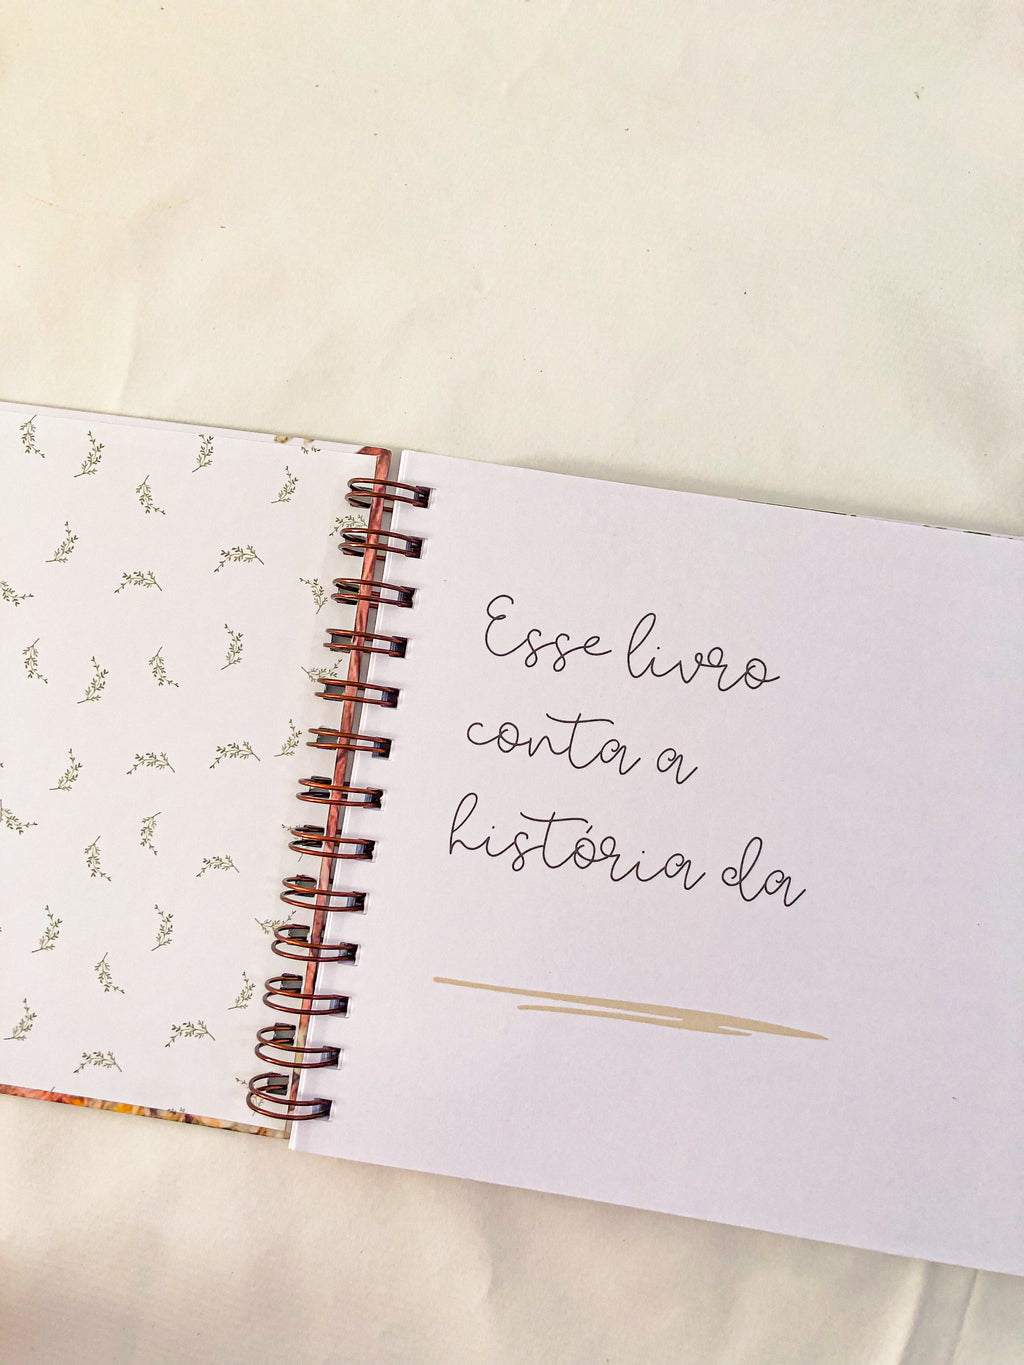 Esse livro
conta a
história da